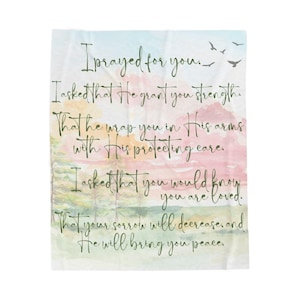 I prayed for you.
I asked that He grant you strength.
That he wrap you in His arms
with His protecting care.
I asked that you would know
you are loved.
That your sorrow will decrease, and
He will bring you peace.